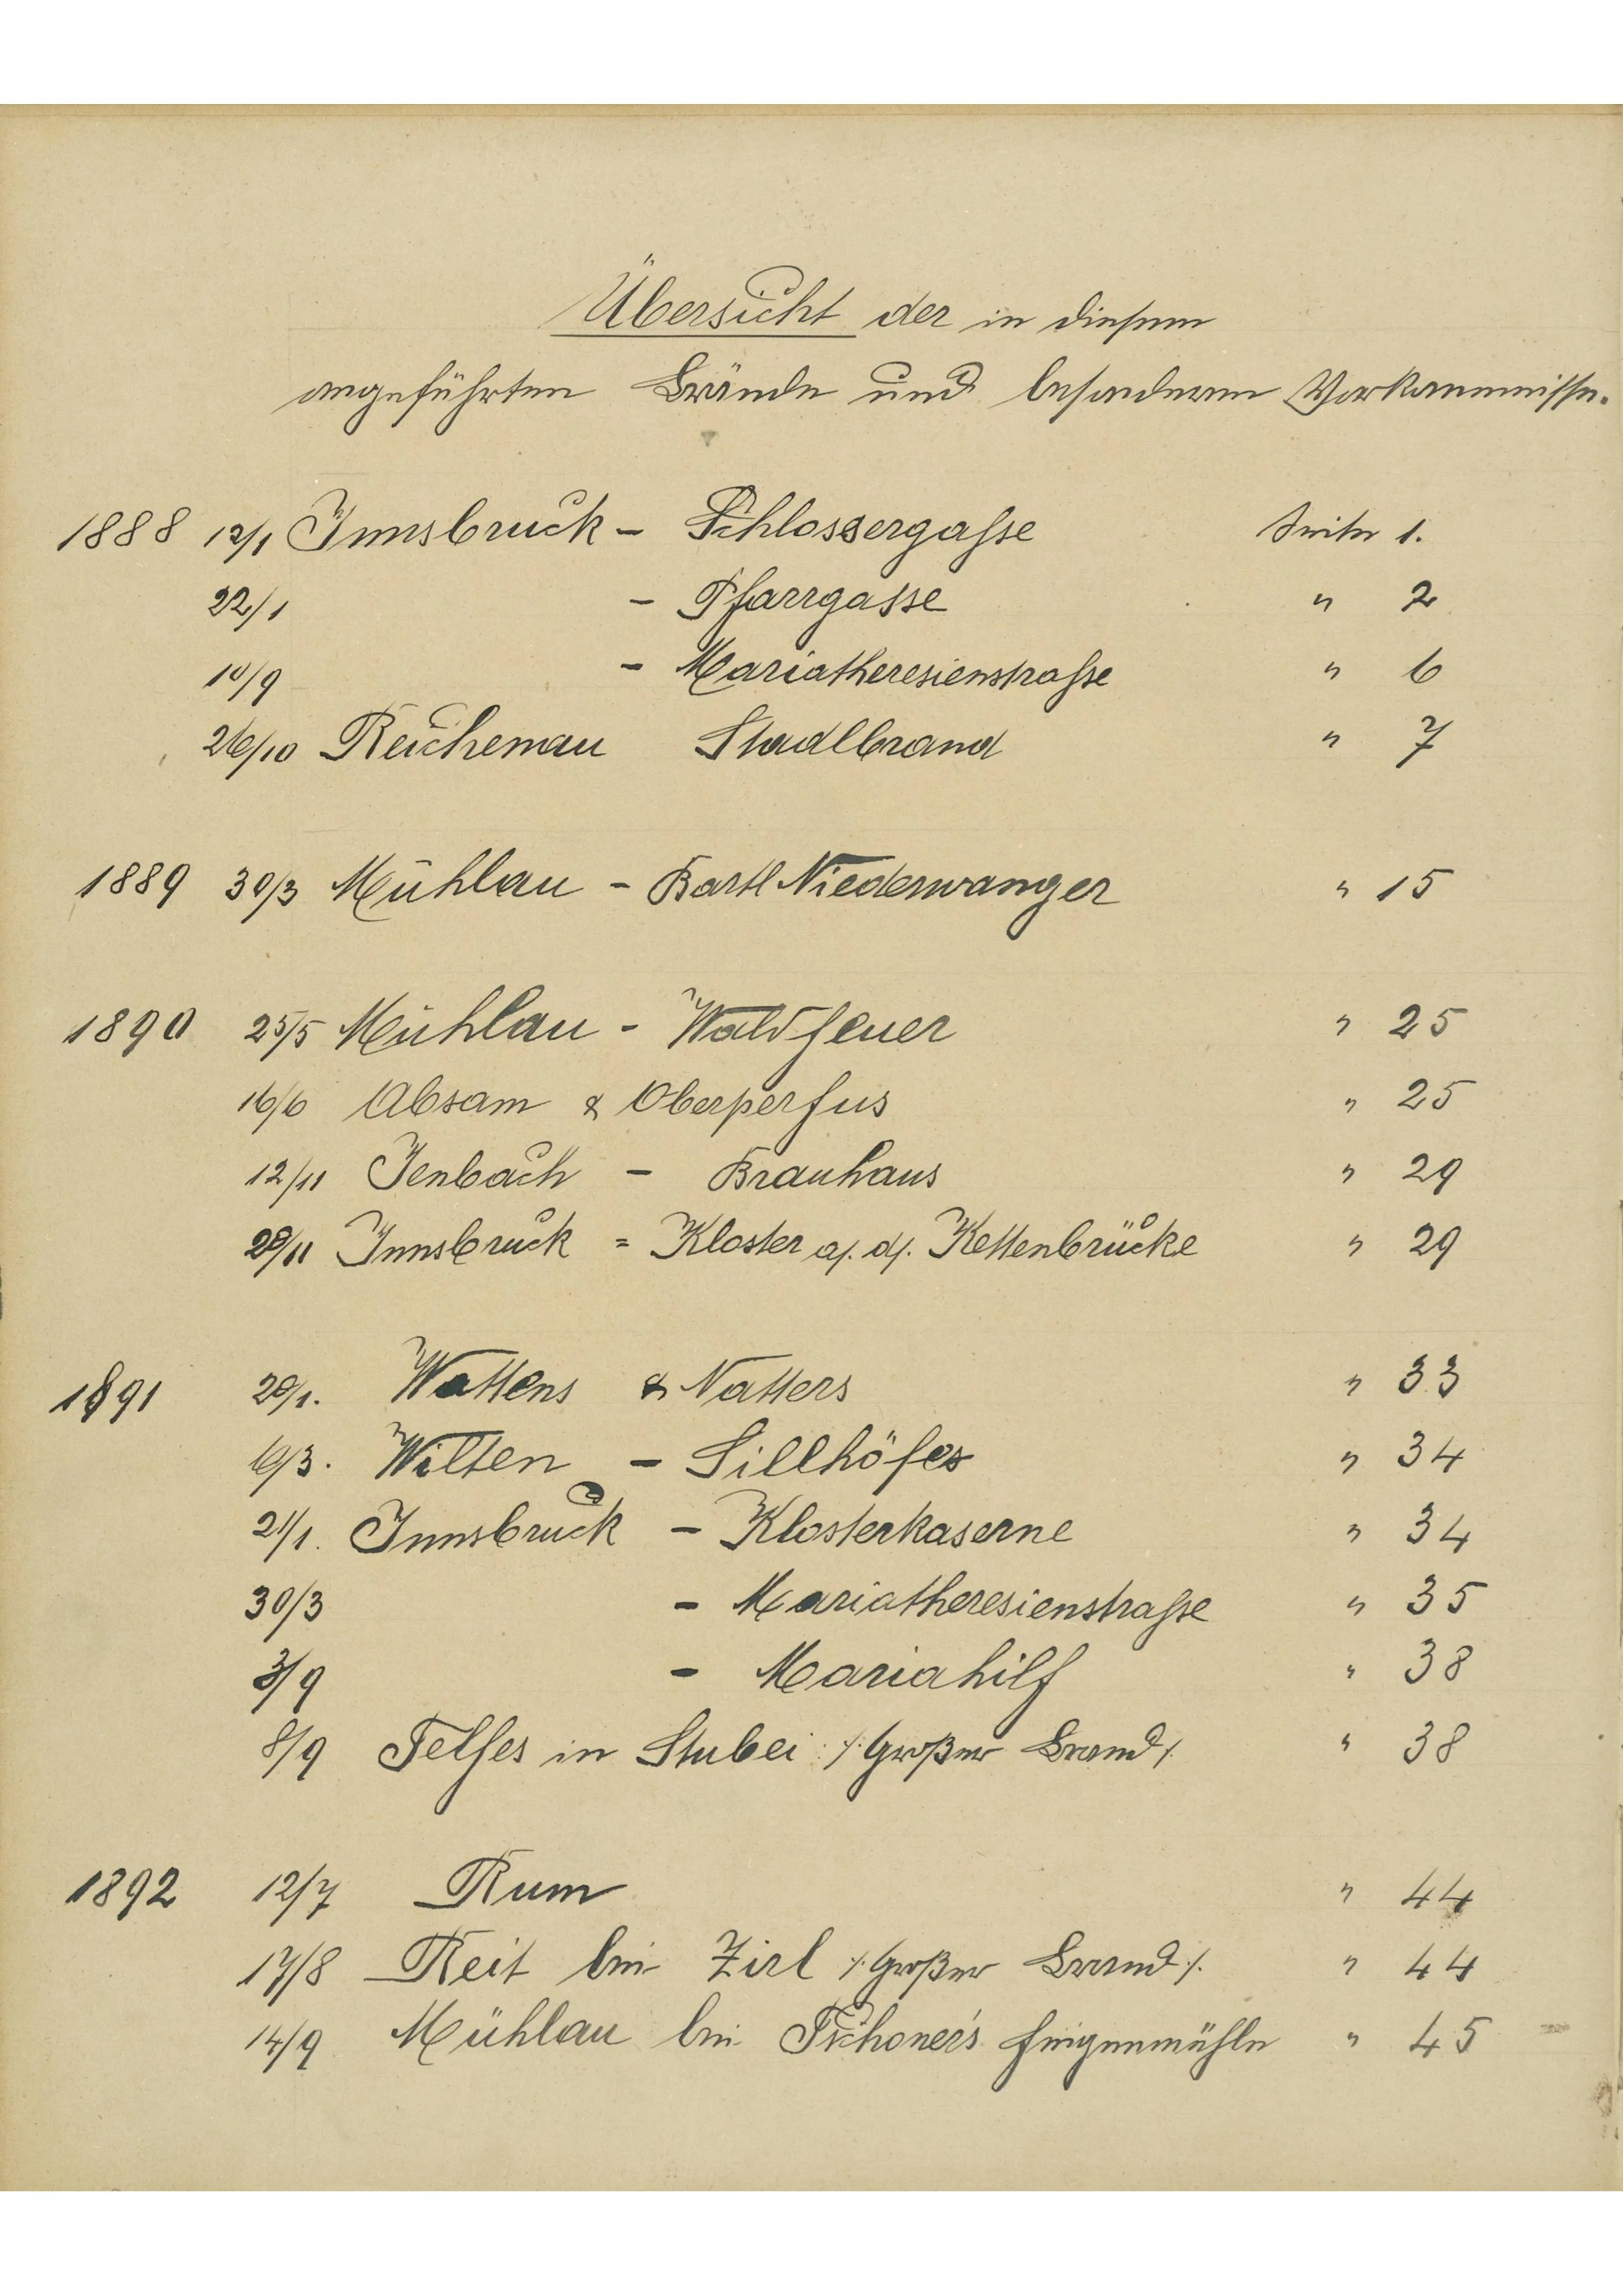 Übersicht der in diesem
angeführten Brände und besonderen Vorkommnisse.
1888 12/1 Innsbruck - Schlossergasse Seite 1.
22/1 - Pfarrgasse " 2
10/9 - Mariatheresienstrasse " 6
26/10 Reichenau Stadlbrand " 7
1889 30/3 Mühlau - Bartl Niederwanger " 15
1890 25/5 Mühlau - Waldfeuer " 25
16/6 Absam & Oberperfus " 25
12/11 Jenbach - Brauhaus " 29
29/11 Innsbruck = Kloster a/. d/. Kettenbrücke " 29
1891 20/1. Wattens & Natters " 33
10/3. Wilten - Sillhöfe " 34
21/1. Innsbruck - Klosterkaserne " 34
30/3 - Mariatheresienstrasse " 35
3/9 - Mariahilf " 38
8/9 Telfes in Stubei /: Großer Brand /. " 38
1892 12/7 Rum " 44
17/8 Reit bei Zirl /: Großer Brand /. " 44
14/9 Mühlau bei Tschoner's Feigenmühle " 45